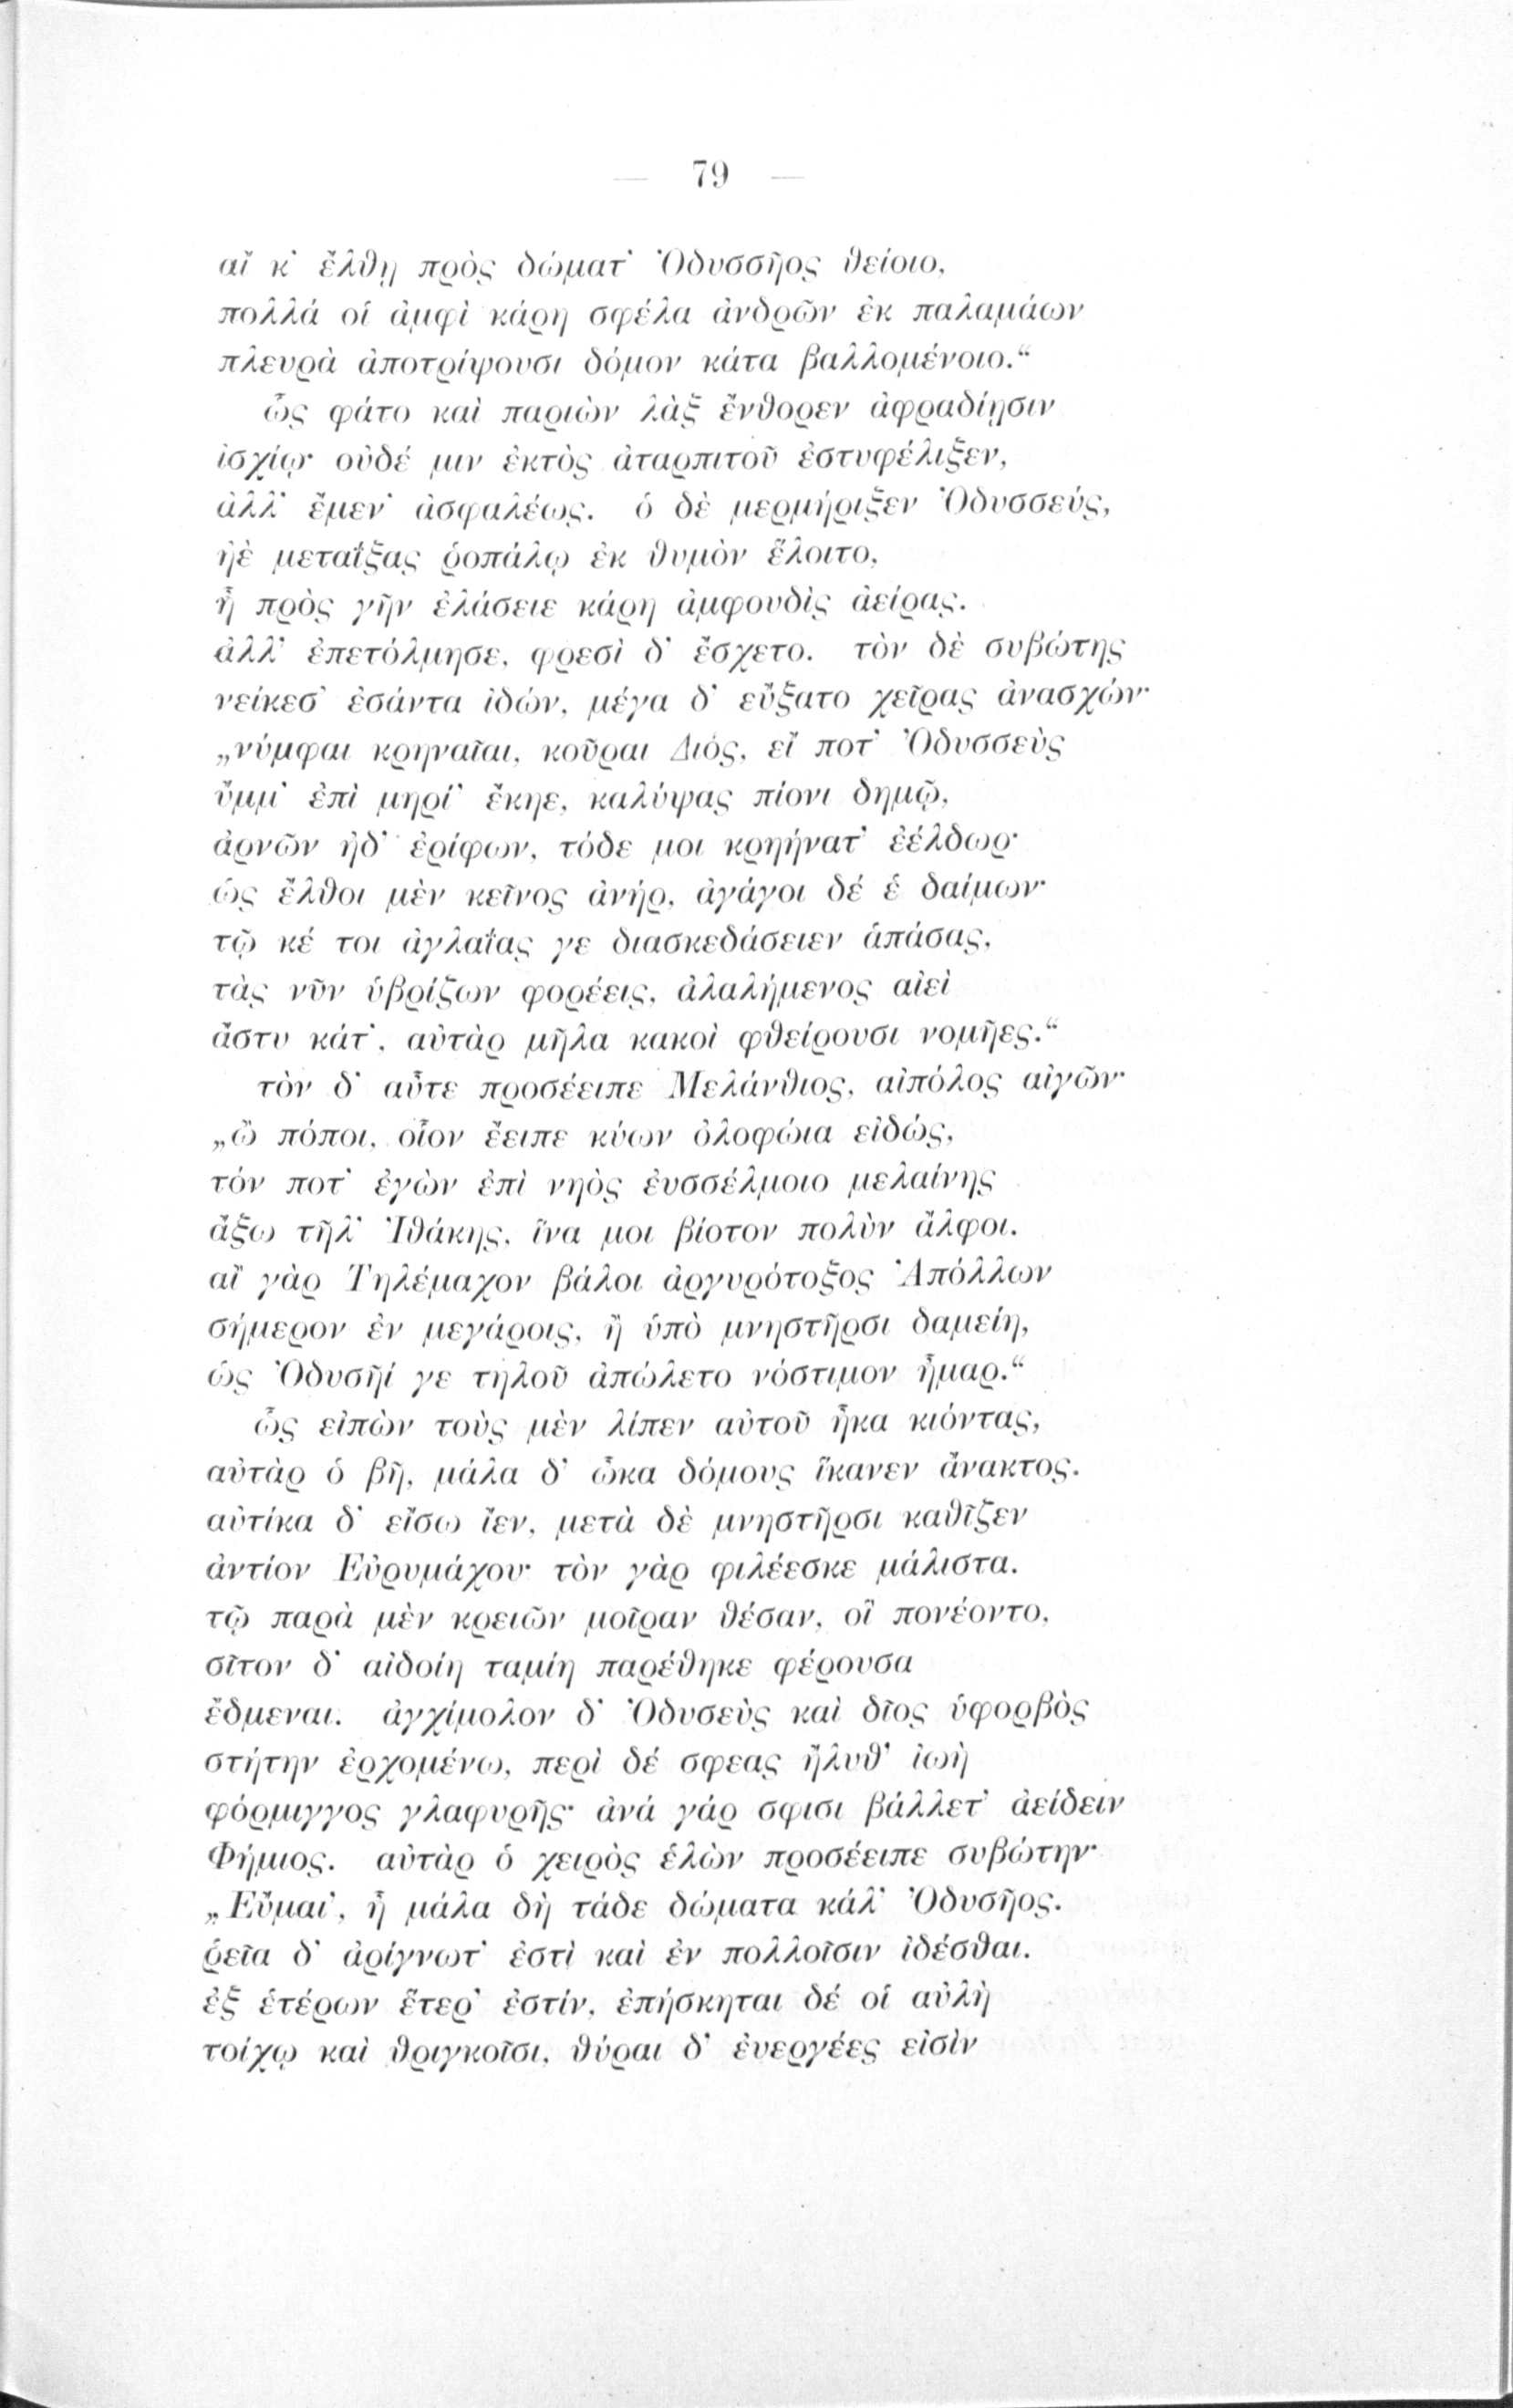 — 79 —
αἴ κ' ἔλθῃ πρὸς δώματ' Ὀδυσσῆος θείοιο,
πολλά οἱ ἀμφὶ κάρη σφέλα ἀνδρῶν ἐκ παλαμάων
πλευρὰ ἀποτρίψουσι δόμον κάτα βαλλομένοιο.“
ὣς φάτο καὶ παριὼν λὰξ ἔνθορεν ἀφραδίῃσιν
ἰσχίῳ· οὐδέ μιν ἐκτὸς ἀταρπιτοῦ ἐστυφέλιξεν,
ἀλλ' ἔμεν' ἀσφαλέως. ὁ δὲ μερμήριξεν Ὀδυσσεύς,
ἠὲ μεταΐξας ῥοπάλῳ ἐκ θυμὸν ἕλοιτο,
ἦ πρὸς γῆν ἐλάσειε κάρη ἀμφουδὶς ἀείρας.
ἀλλ' ἐπετόλμησε, φρεσὶ δ' ἔσχετο. τὸν δὲ συβώτης
νείκεσ' ἐσάντα ἰδών, μέγα δ' εὔξατο χεῖρας ἀνασχών·
„νύμφαι κρηναῖαι, κοῦραι Διός, εἴ ποτ' Ὀδυσσεὺς
ὔμμ' ἐπὶ μηρί' ἔκηε, καλύψας πίονι δημῷ,
ἀρνῶν ἠδ' ἐρίφων, τόδε μοι κρηήνατ' ἐέλδωρ·
ὡς ἔλθοι μὲν κεῖνος ἀνήρ, ἀγάγοι δέ ἑ δαίμων·
τῷ κέ τοι ἀγλαΐας γε διασκεδάσειεν ἁπάσας,
τὰς νῦν ὑβρίζων φορέεις, ἀλαλήμενος αἰεὶ
ἄστυ κάτ', αὐτὰρ μῆλα κακοὶ φθείρουσι νομῆες.“
τὸν δ' αὖτε προσέειπε Μελάνθιος, αἰπόλος αἰγῶν·
„ὢ πόποι, οἷον ἔειπε κύων ὀλοφώια εἰδώς,
τόν ποτ' ἐγὼν ἐπὶ νηὸς ἐυσσέλμοιο μελαίνης
ἄξω τῆλ' Ἰθάκης, ἵνα μοι βίοτον πολὺν ἄλφοι.
αἲ γὰρ Τηλέμαχον βάλοι ἀργυρότοξος Ἀπόλλων
σήμερον ἐν μεγάροις, ἢ ὑπὸ μνηστῆρσι δαμείη,
ὡς Ὀδυσῆί γε τηλοῦ ἀπώλετο νόστιμον ἦμαρ.“
ὣς εἰπὼν τοὺς μὲν λίπεν αὐτοῦ ἦκα κιόντας,
αὐτὰρ ὁ βῆ, μάλα δ' ὦκα δόμους ἵκανεν ἄνακτος.
αὐτίκα δ' εἴσω ἴεν, μετὰ δὲ μνηστῆρσι καθῖζεν
ἀντίον Εὐρυμάχου· τὸν γὰρ φιλέεσκε μάλιστα.
τῷ παρὰ μὲν κρειῶν μοῖραν θέσαν, οἳ πονέοντο,
σῖτον δ' αἰδοίη ταμίη παρέθηκε φέρουσα
ἔδμεναι. ἀγχίμολον δ' Ὀδυσεὺς καὶ δῖος ὑφορβὸς
στήτην ἐρχομένω, περὶ δέ σφεας ἤλυθ' ἰωὴ
φόρμιγγος γλαφυρῆς· ἀνά γάρ σφισι βάλλετ' ἀείδειν
Φήμιος. αὐτὰρ ὁ χειρὸς ἑλὼν προσέειπε συβώτην·
„Εὔμαι', ἦ μάλα δὴ τάδε δώματα κάλ' Ὀδυσῆος.
ῥεῖα δ' ἀρίγνωτ' ἐστὶ καὶ ἐν πολλοῖσιν ἰδέσθαι.
ἐξ ἑτέρων ἕτερ' ἐστίν, ἐπήσκηται δέ οἱ αὐλὴ
τοίχῳ καὶ θριγκοῖσι, θύραι δ' ἐυεργέες εἰσὶν